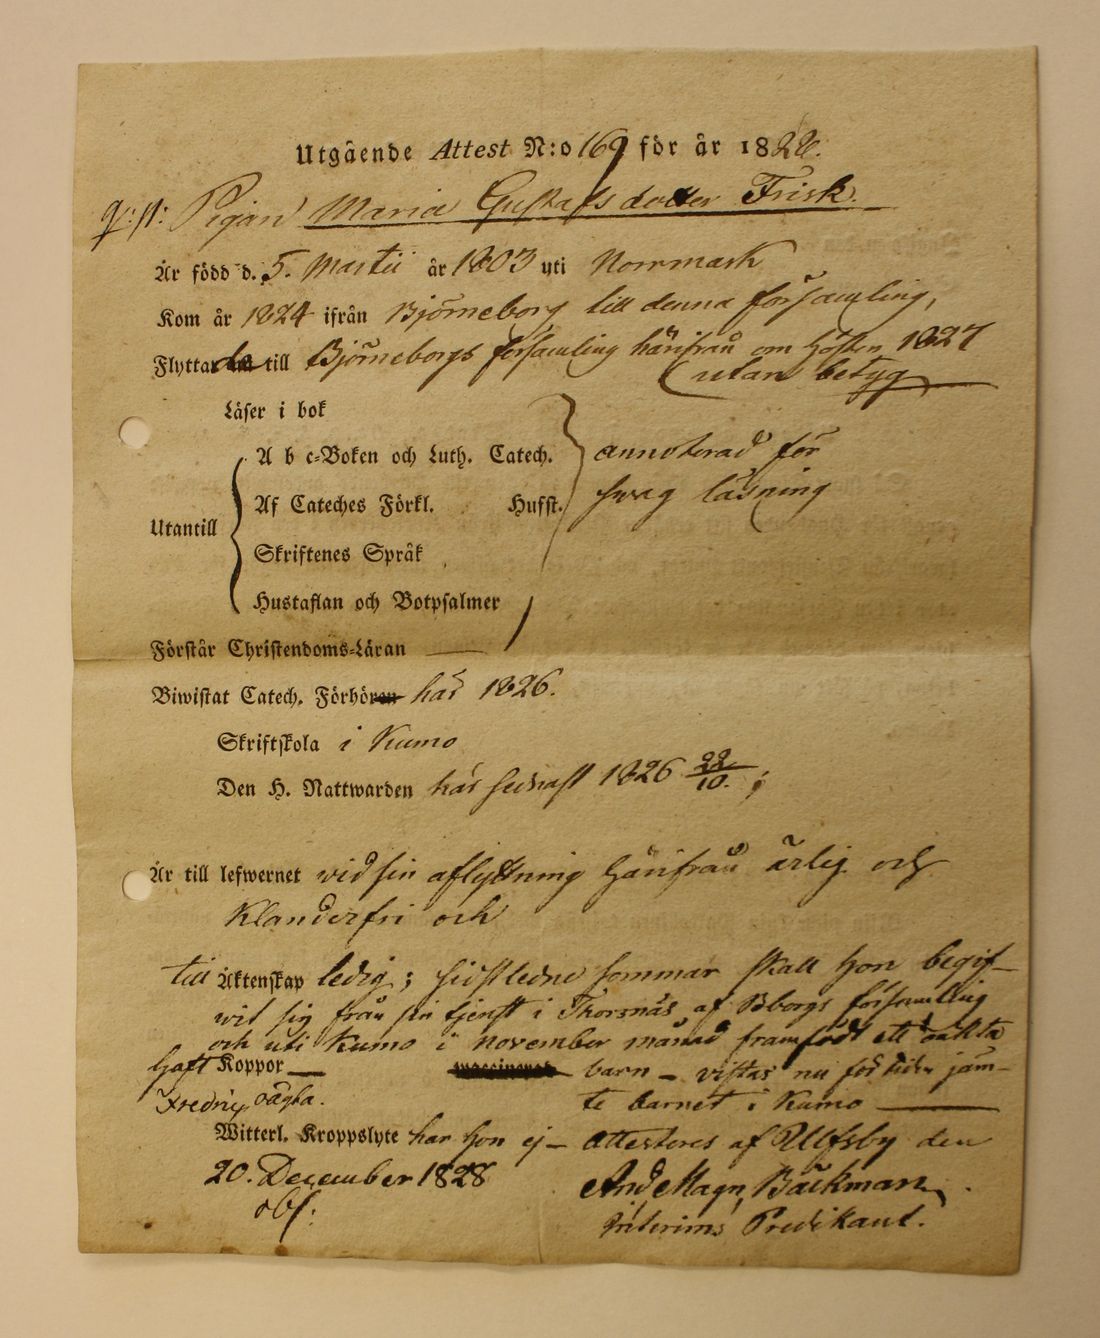 Utgående Attest N:o 169 för år 1828.
q:st: Pigan Maria Gustafsdotter Frisk.
Är född d. 5. Martii år 1803 uti Norrmark
Kom år 1824 ifrån Björneborg till denna församling,
Flyttade till Björneborgs församling härifrån om hösten 1827
(utan betyg
Läser i bok
A b c-Boken och Luth. Catech. annoterad för
Af Cateches Förkl. Husst. swag läsning
Utantill
Skriftenes Språk
Hustaflan och Botpsalmer
Förstår Christendoms-Läran —
Biwistat Catech. Förhören här 1826.
Skriftskola i Kumo
Den H. Nattwarden här sednast 1826 22/10. ;
Är till lefwernet wid sin aflyttning härifrån ärlig och
Klanderfri och
till Äktenskap ledig; sidstledne sommar skall hon begif-
wit sig från sin tjenst i Thorsnäs af Bborgs församling
och uti Kumo i november månad framfödt ett oäkta
haft Koppor — barn — vistas nu för tiden jäm-
Fredrig te barnet i Kumo —
Witterl. Kroppslyte har hon ej — Attesteres af Ulfsby den
20. December 1828 And Magn Bäckman
Interims Predikant.